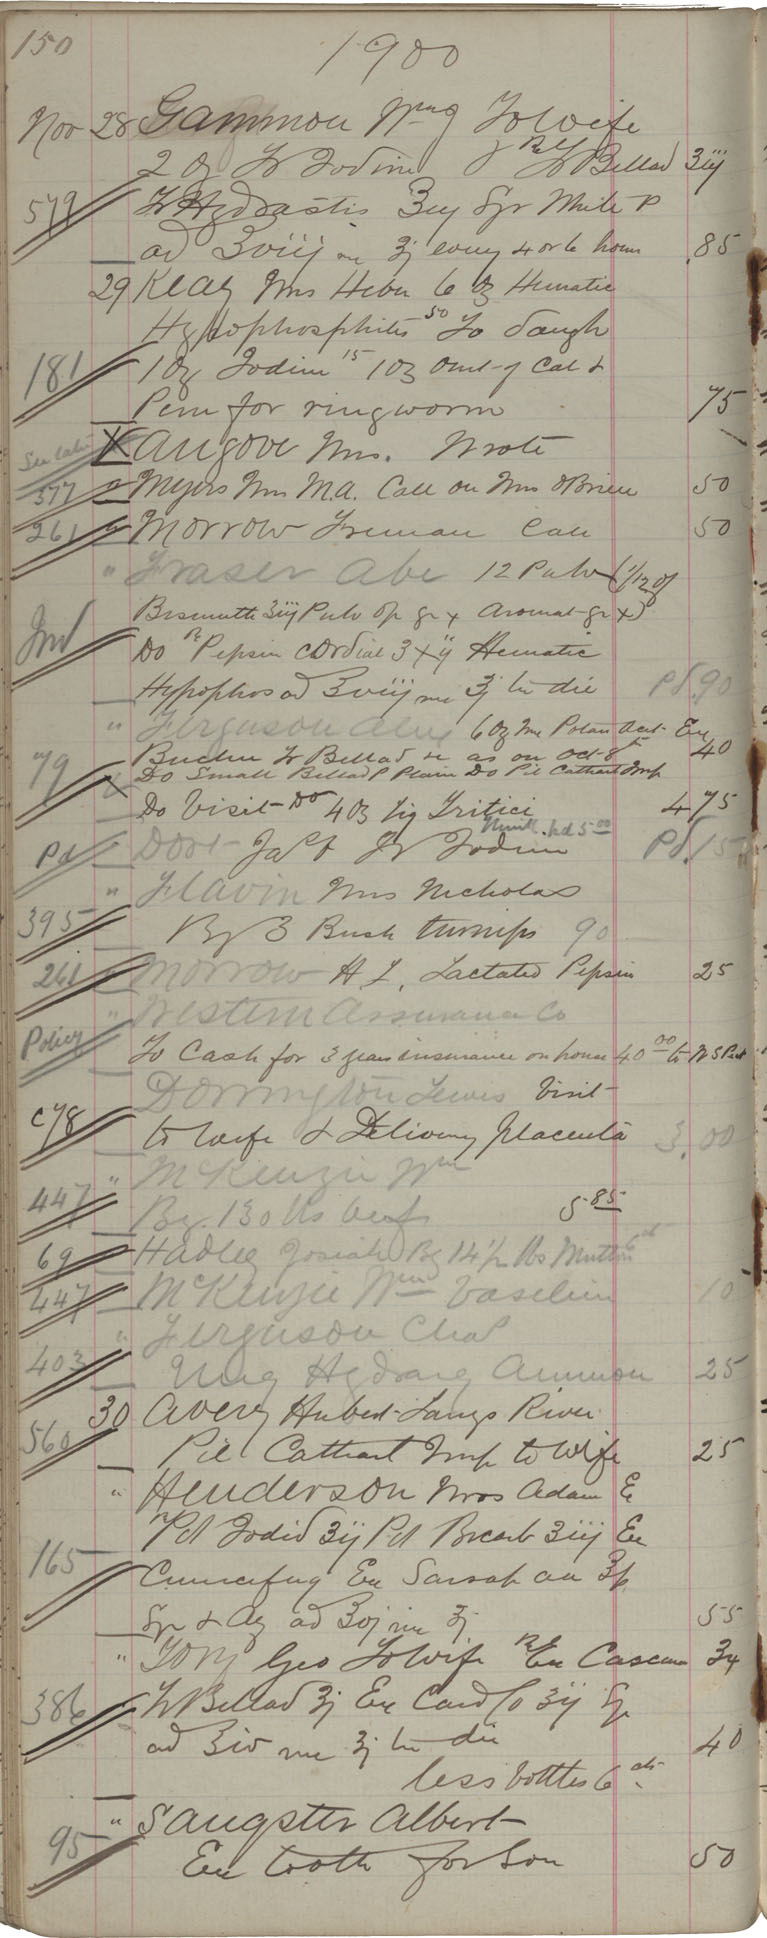 150
1900
Nov 28 Gammon Wm J To Wife
2 oz Tr Iodine Rx Tr Bellad ʒiij
579 Tr Hydrastis ʒiij Syr White P
ad ℥viij ʒj every 4 or 6 hours .85
29 Keay Mrs Heber 6 oz Hematic
Hypophosphites 50 To daugh
181 1 oz Iodine 15 1 oz Oint of Cal &
for ringworm 75
See late X Angove Mrs. Wrote
377 " Myers Mrs M.A. Call on Mrs OBrien 50
261 " Morrow Freman Call 50
" Fraser Abe 12 Pulv (1/12 of
Bismuth ʒiij Pulv Op gr x Aromat gr x)
Do Rx Pepsin Cordial ʒxij Hematic
Hypophos ad ℥viij ʒj ter die Pd .90
" Ferguson Alex 6 oz Potass Acet Ex
79 Buchu Tr Bellad as on Oct 8th 40
Do Small Bellad P Plain Do Pil Cathart Imp
Do Visit Do 4 oz Tritici 4 75
hd 5 00
Pd " Dort Jacob Tr Iodine Pd. 15
" Flavin Mrs Nicholas
395 By 3 Bush turnips 90
261 " Morrow H L, Lactated Pepsin 25
" Western Assurance Co
Policy To Cash for 3 years insurance on house 40 00 to
Dorrington Lewis Visit
C78 to wife & Delivery placenta 3.00
" McKenzie Wm
447 By 130 lbs beef 5 85
69 Hadley Josiah By 14½ lbs Mutton
447 McKenzie Wm Vaseline 10
" Ferguson Chas
403 Ung Hydrarg Ammon 25
30 Avery Hubert Tangs River
560 Pil Cathart Imp to Wife 25
" Henderson Mrs Adam Ex
Pot Iodid ʒij Pot Bicarb ʒiij Ex
165 Cimicifug Ex Sarsap aa
Syr & Aq ad ʒj 55
" Tory Geo To Wife Rx Ex Cascara
386 Tr Bellad ʒj Ex Card Co ʒij Syr
ad ℥iv ʒj ter die 40
less bottles 6 cts
" Sangster Albert
95 Ex tooth for Son 50